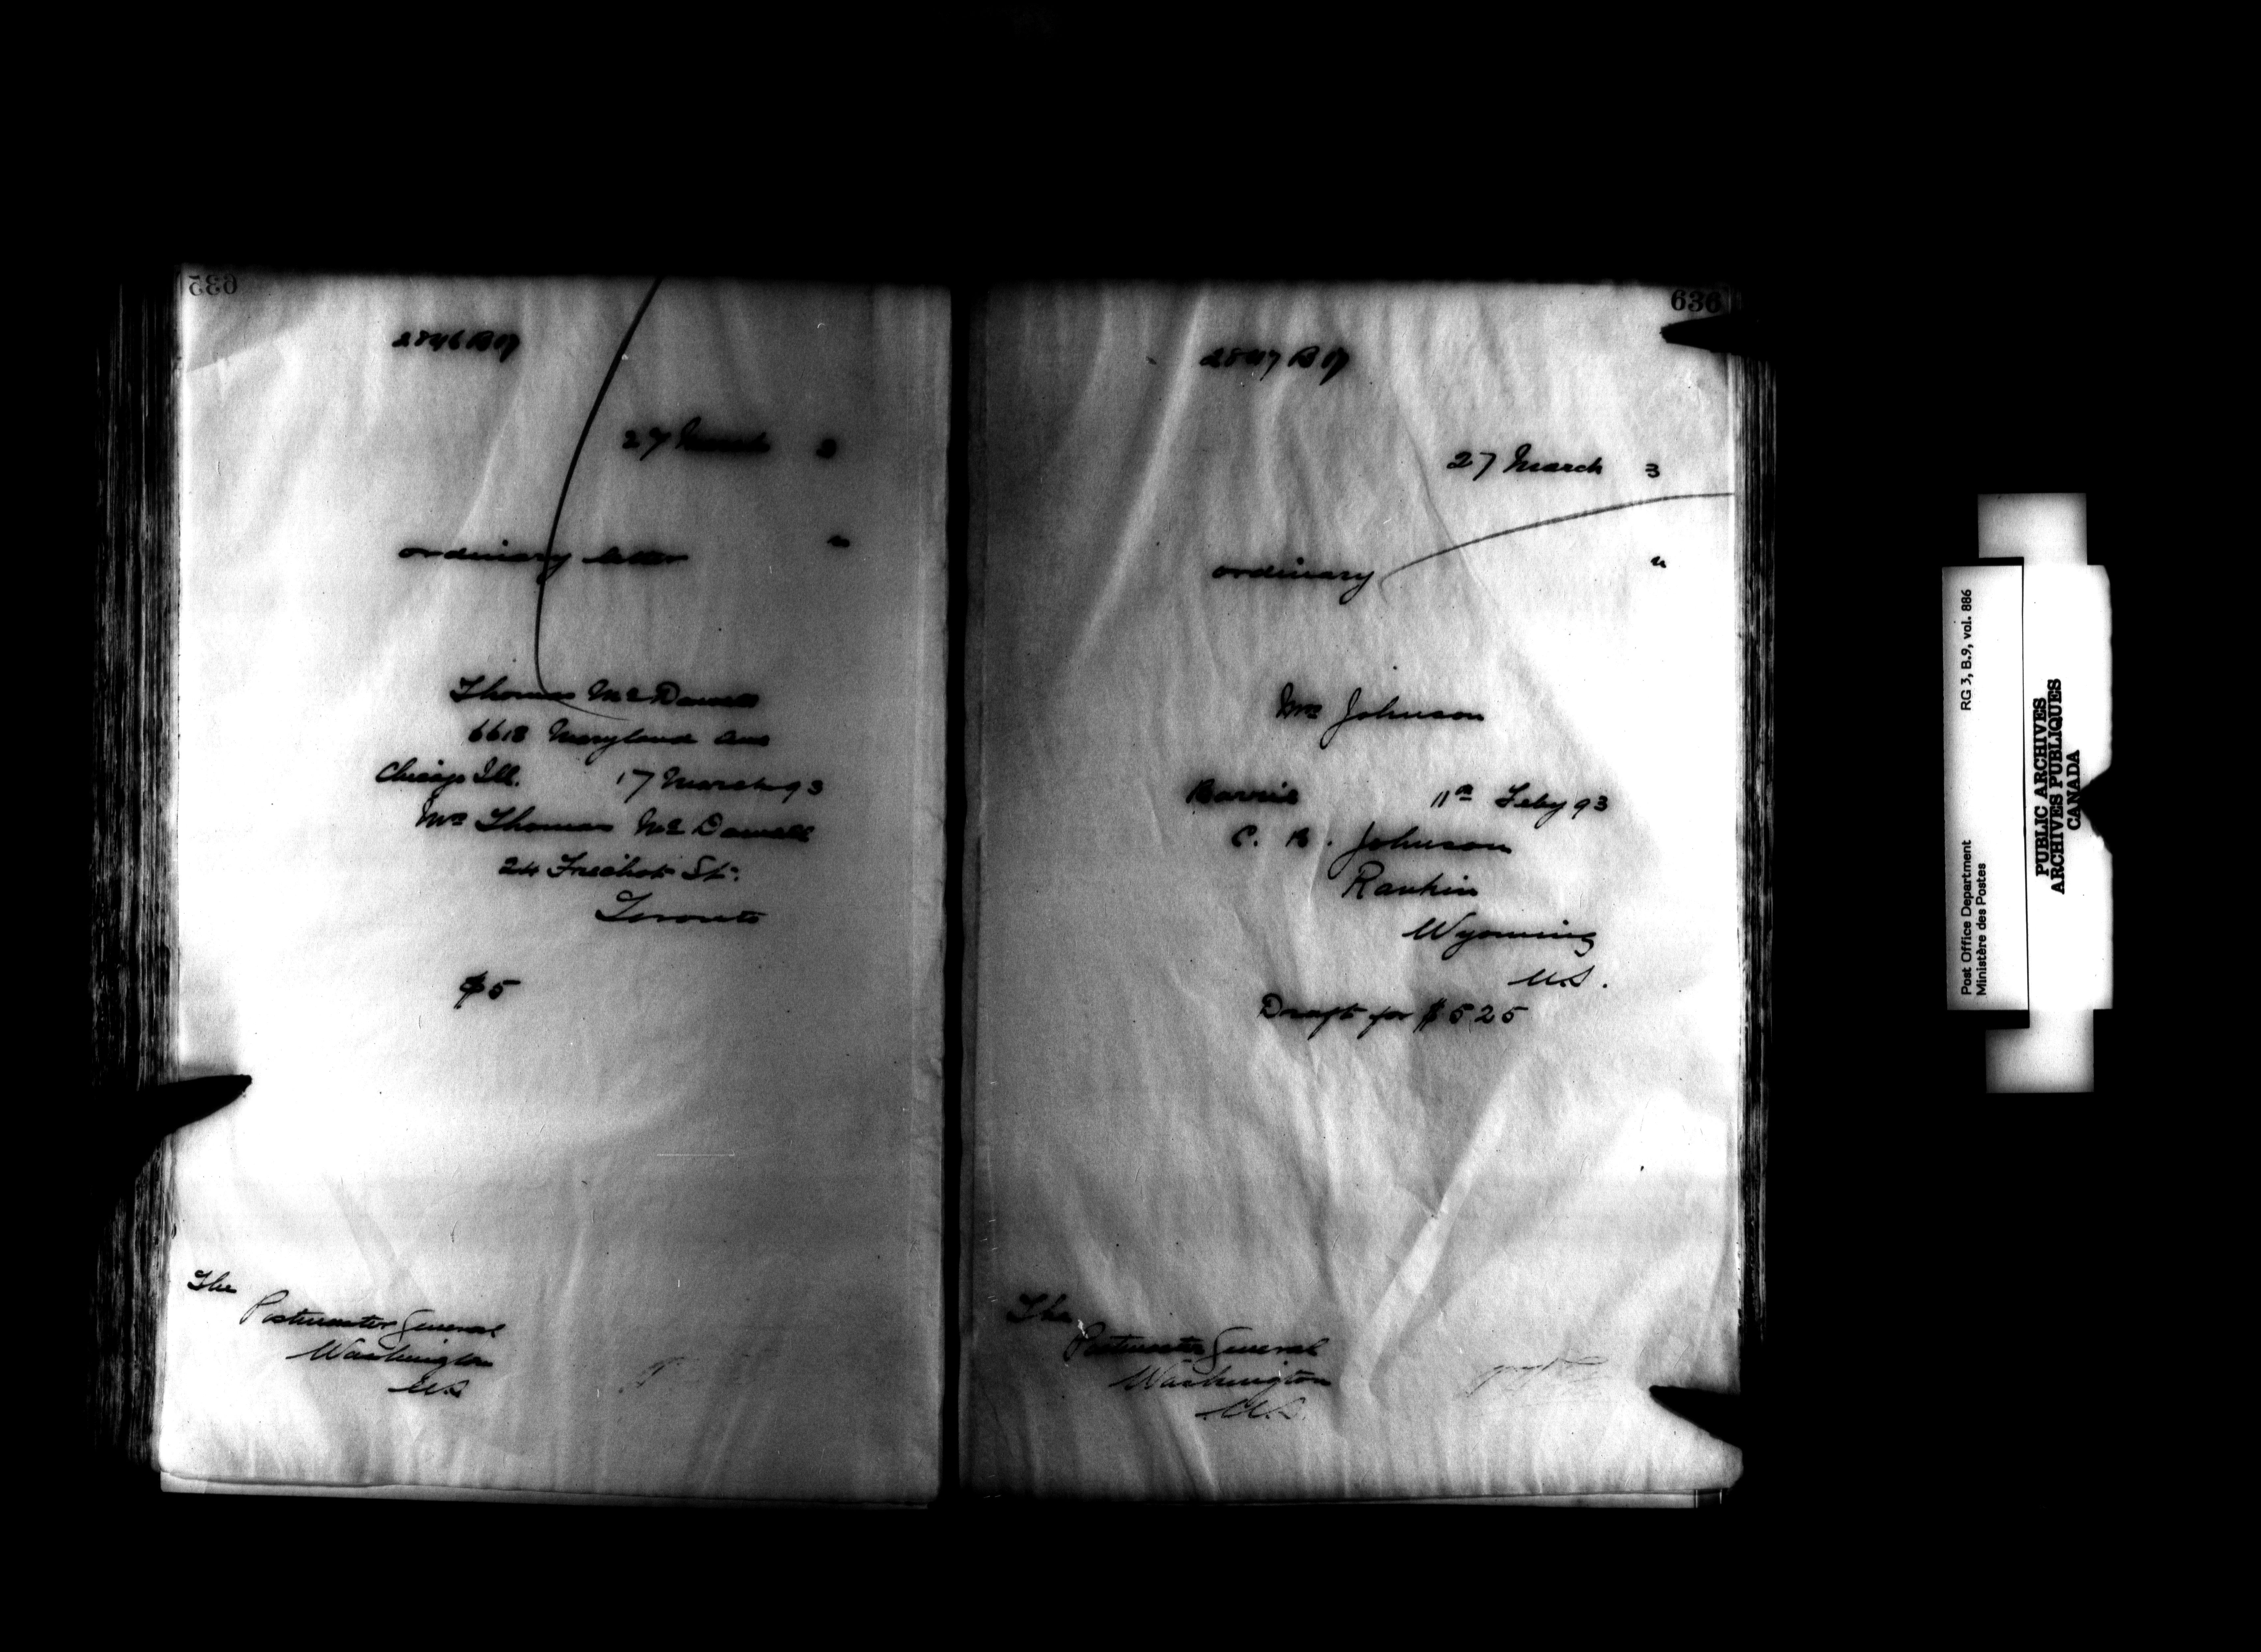 635
2846 B 17
27 March 3
n
ordinary letter
Thomas McDowell
6618 Maryland Ave
Chicago Ill. 17 March 93
Mrs Thomas McDowell
24 St.
Toronto
$5
The
Postmaster General
Washington
U.S
636
2847 B 17
27 March 3
u
ordinary
Mrs Johnson
Barrie 11th Feby 93
C. B. Johnson
Rankin
Wyoming
U.S.
Draft for $525
The
Postmaster General
Washington
U.S.
Post Office Department RG 3, B.9, vol. 886
Ministère des Postes
PUBLIC ARCHIVES
ARCHIVES PUBLIQUES
CANADA